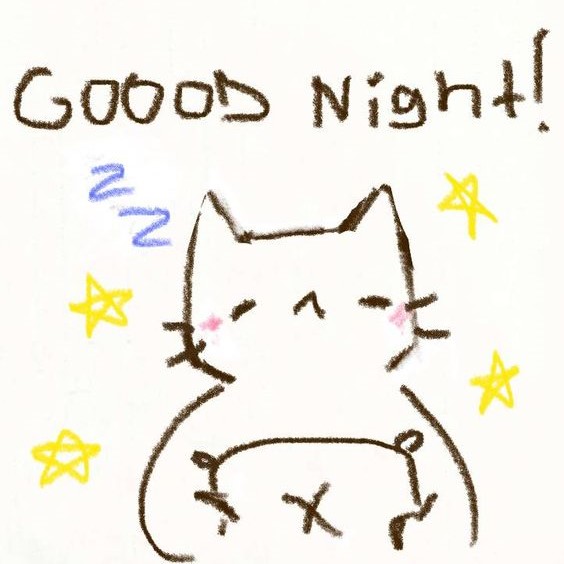 GOOOD Night!
z
z